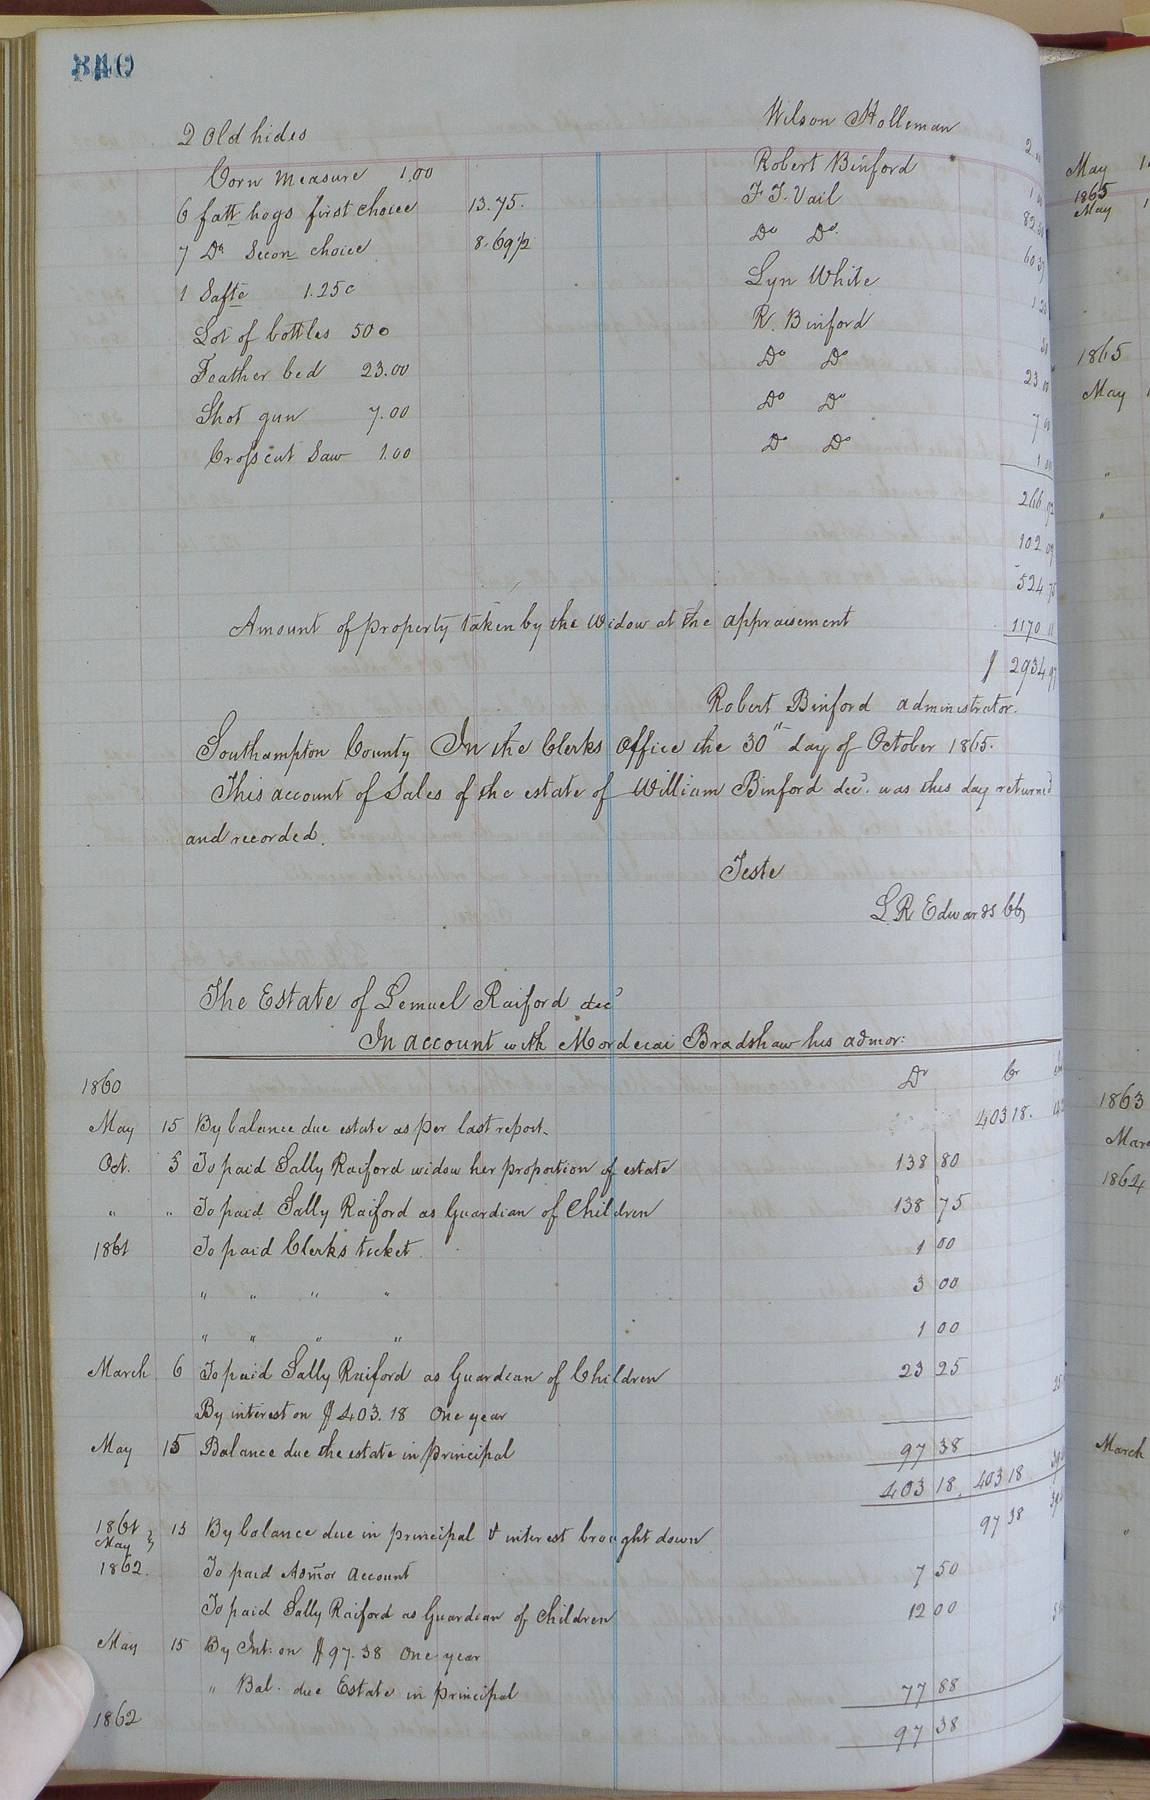 340
2 Old hides Wilson Holleman 2
Corn Measure 1.00 Robert Binford 1
6 fatt hogs first choice 13.75. F. T. Vail 82
7 Do Secon choice 8.69 1/2 Do Do 60
1 Safte 1.25c Lyn White 1
Lot of bottles 500 R. Binford
Feather bed 23.00 Do Do 23
Shot gun 7.00 Do Do 7
Crosscut Saw 1.00 Do Do 1
266
102
524
Amount of property taken by the Widow at the appraisement 1170
$ 2934
Robert Binford administrator.
Southampton County In the Clerks Office the 30" day of October 1865.
This account of Sales of the estate of William Binford decd. was this day returned
and recorded.
Teste
L R Edwards CC
The Estate of Lemuel Raiford decd
In account with Mordecai Bradshaw his admor:
1860 Dr Cr
May 15 By balance due estate as per last report. 403 18.
Oct. 5 To paid Sally Raiford widow her proportion of estate 138 80
" " To paid Sally Raiford as Guardian of Children 138 75
1861 To paid Clerks ticket 1 00
" " " " 3 00
" " " " 1 00
March 6 To paid Sally Raiford as Guardian of Children 23 25
By interest on $403.18 One year
May 15 Balance due the estate in principal 97 38
403 18. 403 18
1861 May 15 By balance due in principal & interest brought down 97 38
1862. To paid Admor account 7 50
To paid Sally Raiford as Guardian of Children 12 00
May 15 By Int: on $97.38 One year
" Bal. due Estate in principal 77 88
1862 97 38
May
1865
May
1865
May
"
"
1863
1864
March
"